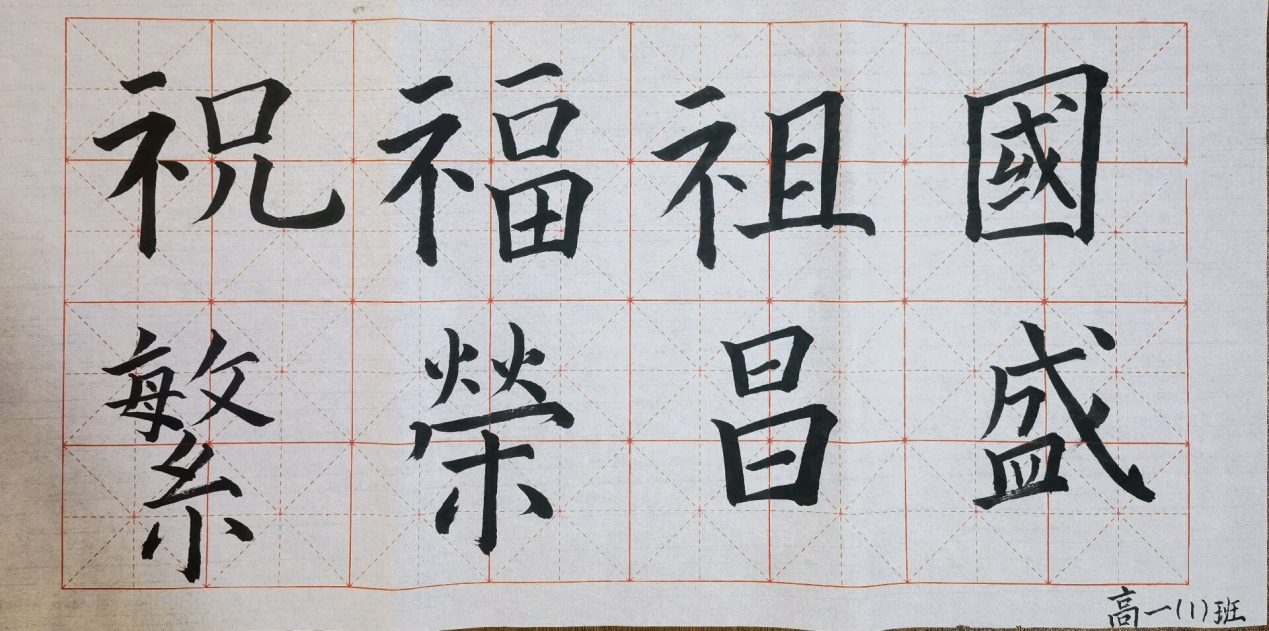 祝福祖國
繁榮昌盛
高一(1)班